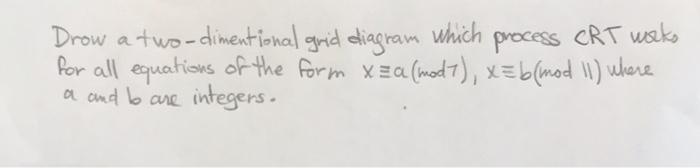 Drow a two-dimentional grid diagram which process CRT works
for all equations of the form x≡a(mod7), x≡b(mod 11) where
a and b are integers.